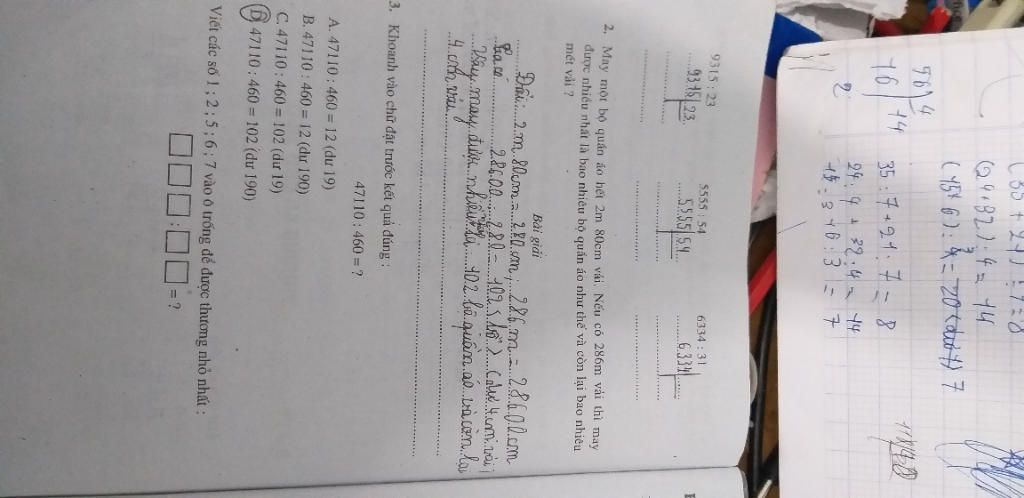 9315 : 23
5555 : 54
6334 : 31
9315 23
5555 54
6334
2. May một bộ quần áo hết 2m 80cm vải. Nếu có 286m vải thì may
được nhiều nhất là bao nhiêu bộ quần áo như thế và còn lại bao nhiêu
mét vải ?
Bài giải
Đổi : 2m 80cm = 280 cm; 286 m = 28600 cm
Ta có 28600 : 280 = 102 (bộ)
Vậy may được nhiều nhất là 102 bộ quần áo và còn lại
4
3. Khoanh vào chữ đặt trước kết quả đúng :
47110 : 460 = ?
A. 47110 : 460 = 12 (dư 19)
B. 47110 : 460 = 12 (dư 190)
C. 47110 : 460 = 102 (dư 19)
D. 47110 : 460 = 102 (dư 190)
Viết các số 1 ; 2 ; 5 ; 6 ; 7 vào ô trống để được thương nhỏ nhất :
: = ?
56 4
16 14
2
35 : 7 + 21 : 7 = 8
24 : 4 + 32 : 4 = 14
: 3 + 6 : 3 = 7